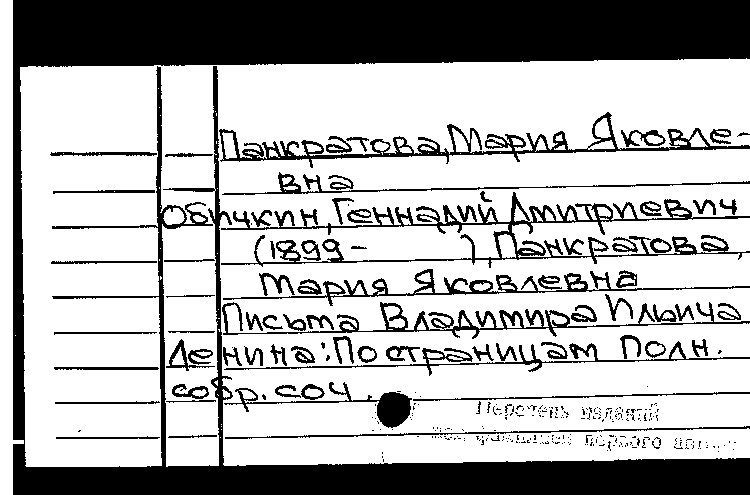 Панкратова, Мария Яковле-
вна
Обичкин, Геннадий Дмитриевич
(1899-     ), Панкратова,
Мария Яковлевна
Письма Владимира Ильича
Ленина: По страницам полн.
собр. соч.
Перечень изданий
под фамилией первого автора